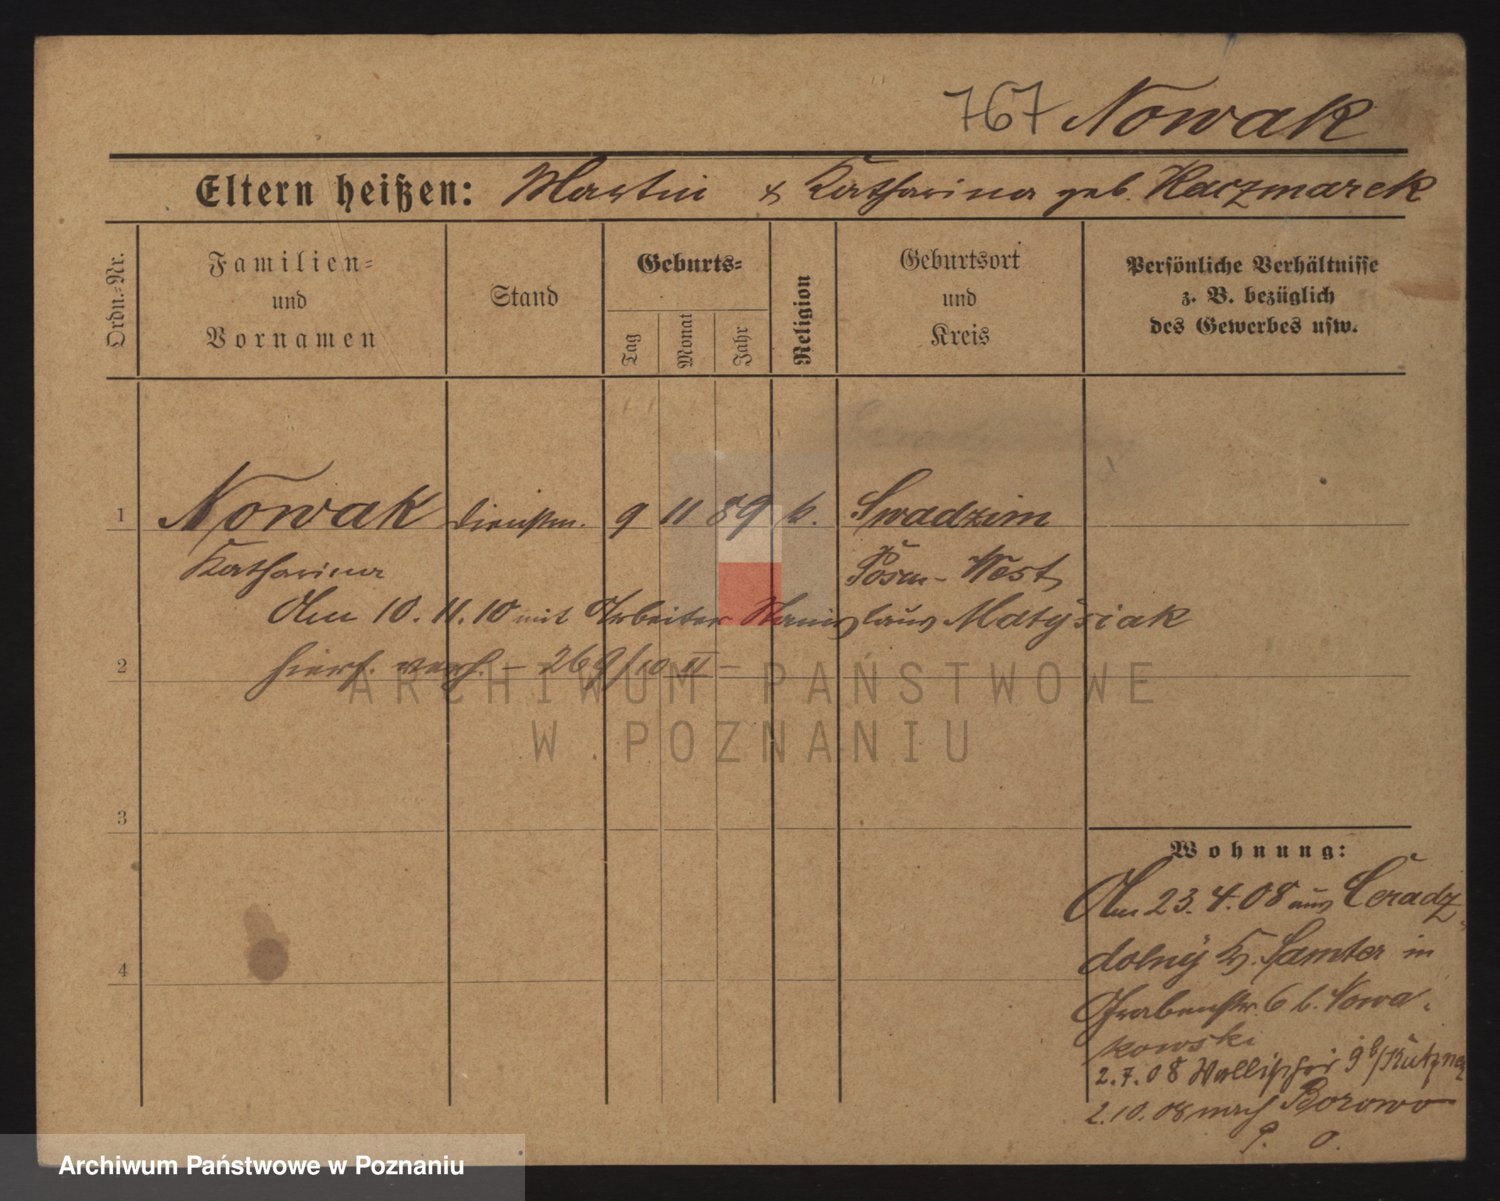 767 Nowak
Eltern heißen: Martin & Katharina geb. Kaczmarek
Ordn.-Nr.
Familien-
und
Vornamen
Stand
Geburts-
Tag
Monat
Jahr
Religion
Geburtsort
und
Kreis
Persönliche Verhältnisse
z. B. bezüglich
des Gewerbes usw.
1 Nowak Dienstm. 9 11 89 k. Swadzim
Katharina Posen-West
Am 10.11.10 mit Arbeiter Stanislaus Matysiak
2 hiers. verh. - 269/10 II -
ARCHIWUM PAŃSTWOWE
W POZNANIU
3
Wohnung:
Am 23.4.08 aus Ceradz
4 dolny K. Samter in
Grabenstr. 6 b. Nowa-
kowski
2.7.08 Wallischei 9 b/Kutzner
2.10.08 nach Borowo
P. O.
Archiwum Państwowe w Poznaniu